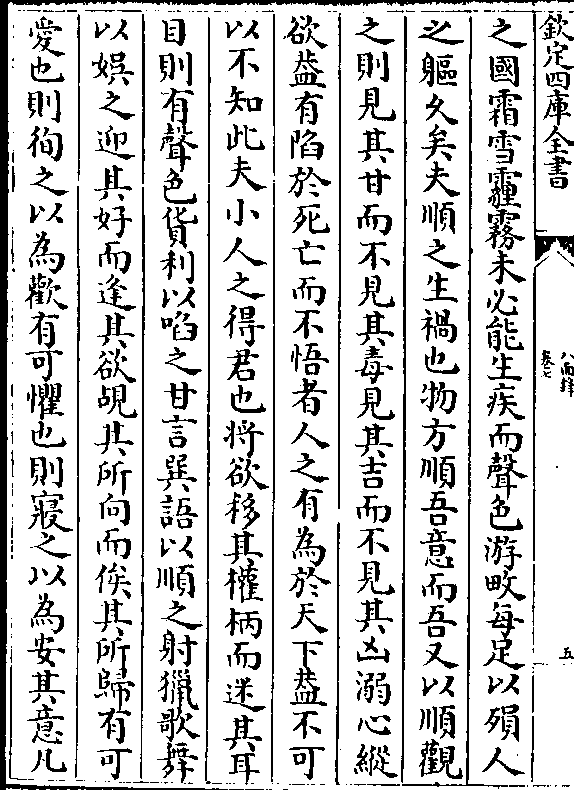 欽定四庫全書
八面鋒
卷七
五
之國霜雪霾霧未必能生疾而聲色游畋每足以殞人
之軀久矣夫順之生禍也物方順吾意而吾又以順觀
之則見其甘而不見其毒見其吉而不見其凶溺心縱
欲葢有陷於死亡而不悟者人之有為於天下葢不可
以不知此夫小人之得君也將欲移其權柄而迷其耳
目則有聲色貨利以啗之甘言巽語以順之射獵歌舞
以娯之迎其好而逢其欲覘其所向而俟其所歸有可
愛也則徇之以為歡有可懼也則寢之以為安其意凡